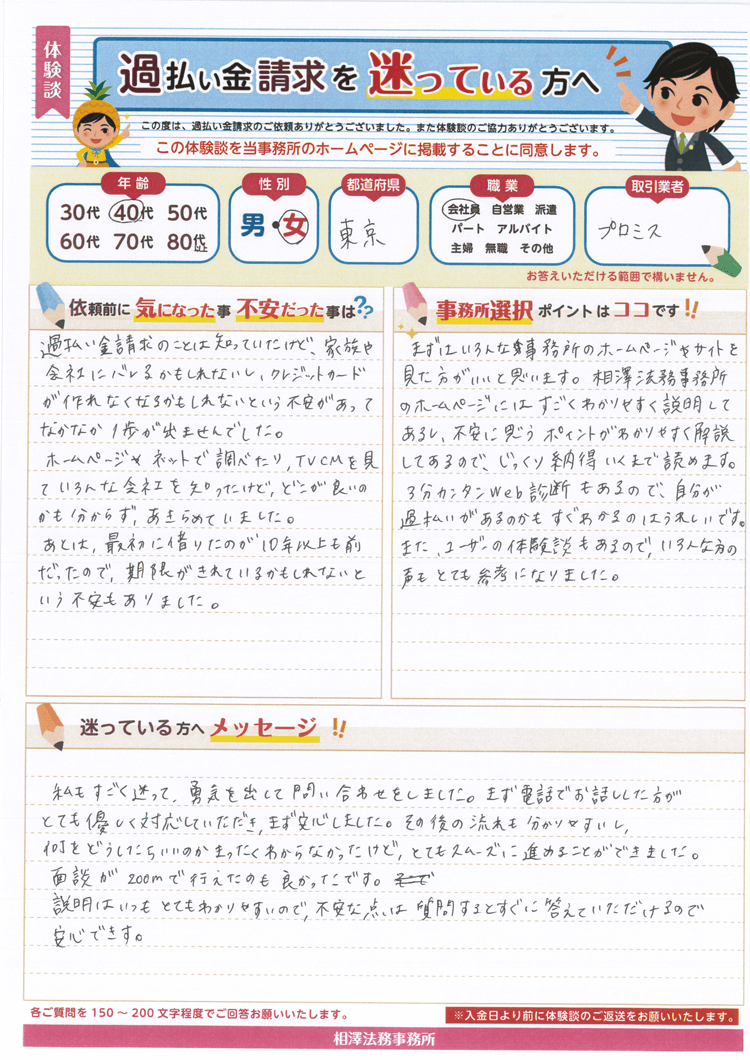 体験談
過払い金請求を迷っている方へ
この度は、過払い金請求のご依頼ありがとうございました。また体験談のご協力ありがとうございます。
この体験談を当事務所のホームページに掲載することに同意します。
年齢
30代 40代 50代
60代 70代 80代以上
性別
男・女
都道府県
東京
職業
会社員 自営業 派遣
パート アルバイト
主婦 無職 その他
取引業者
プロミス
お答えいただける範囲で構いません。
依頼前に気になった事 不安だった事は??
過払い金請求のことは知っていたけど、家族や
会社にバレるかもしれないし、クレジットカード
が作れなくなるかもしれないという不安があって
なかなか1歩が出ませんでした。
ホームページやネットで調べたり、TVCMを見
ていろんな会社を知ったけど、どこが良いの
かも分からず、あきらめていました。
あとは、最初に借りたのが10年以上も前
だったので、期限がきれているかもしれないと
いう不安もありました。
事務所選択ポイントはココです!!
まずはいろんな事務所のホームページやサイトを
見た方がいいと思います。相澤法務事務所
のホームページにはすごくわかりやすく説明して
あるし、不安に思うポイントがわかりやすく解説
してあるので、じっくり納得いくまで読めます。
3分カンタンWeb診断もあるので、自分が
過払いがあるのかもすぐわかるのはうれしいです。
また、ユーザーの体験談もあるので、いろんな方の
声もとても参考になりました。
迷っている方へメッセージ!!
私もすごく迷って、勇気を出して問い合わせをしました。まず電話でお話しした方が
とても優しく対応していただき、まず安心しました。その後の流れも分かりやすいし、
何をどうしたらいいのかまったくわからなかったけど、とてもスムーズに進めることができました。
面談がzoomで行えたのも良かったです。
説明はいつもとてもわかりやすいので、不安な点は質問するとすぐに答えていただけるので
安心できす。
各ご質問を150～200文字程度でご回答お願いいたします。
※入金日より前に体験談のご返送をお願いいたします。
相澤法務事務所